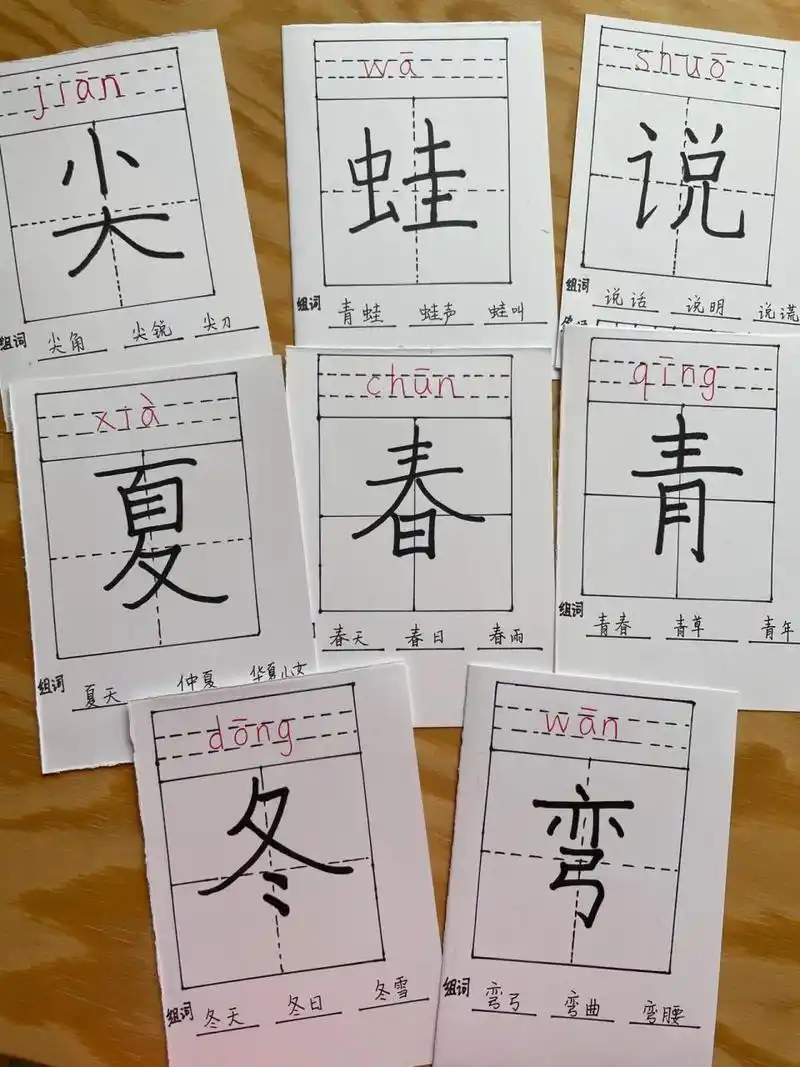 jiān
尖
组词 尖角 尖锐 尖刀
wā
蛙
组词 青蛙 蛙声 蛙叫
shuō
说
组词 说话 说明 说谎
xià
夏
组词 夏天 仲夏 华夏儿女
chūn
春
春天 春日 春雨
qīng
青
组词 青春 青草 青年
dōng
冬
组词 冬天 冬日 冬雪
wān
弯
组词 弯弓 弯曲 弯腰